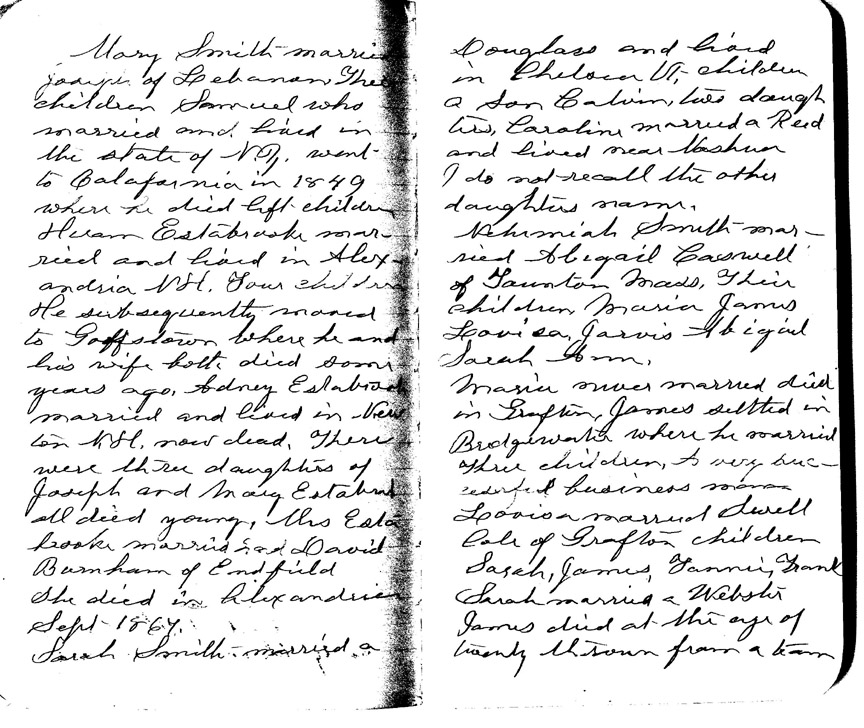 Mary Smith married
Joseph of Lebanon Three
children Samuel who
married and lived in
the state of NY, went
to Calafornia in 1849
where he died left children
Hiram Estabrook mar-
ried and lived in Alex-
andria NH. Four children
He subsequently moved
to Goffstown where he and
his wife both died some
years ago, Adney Estabrook
married and lived in New
ton NH, now dead, There
were three daughters of
Joseph and Mary Estabrook
all died young, Mrs Esta
brooke married David
Burnham of Endfield
She died in Alexandria
Sept 1867.
Sarah Smith married a
Douglass and lived
in Chelsea Vt, children
a son Calvin, two daugh
ters, Caroline married a Reed
and lived near Nashua
I do not recall the other
daughters name.
Nehimiah Smith mar-
ried Abigail Caswell
of Taunton Mass, Their
children Maria James
Lovisa, Jarvis Abigail
Sarah Ann.
Maria never married died
in Grafton, James settled in
Bridgewater where he married
Three children, A very suc-
cessful business man
Lovisa married Sewell
Cole of Grafton children
Sarah, James, Fannie, Frank
Sarah married a Webster
James died at the age of
twenty thrown from a team